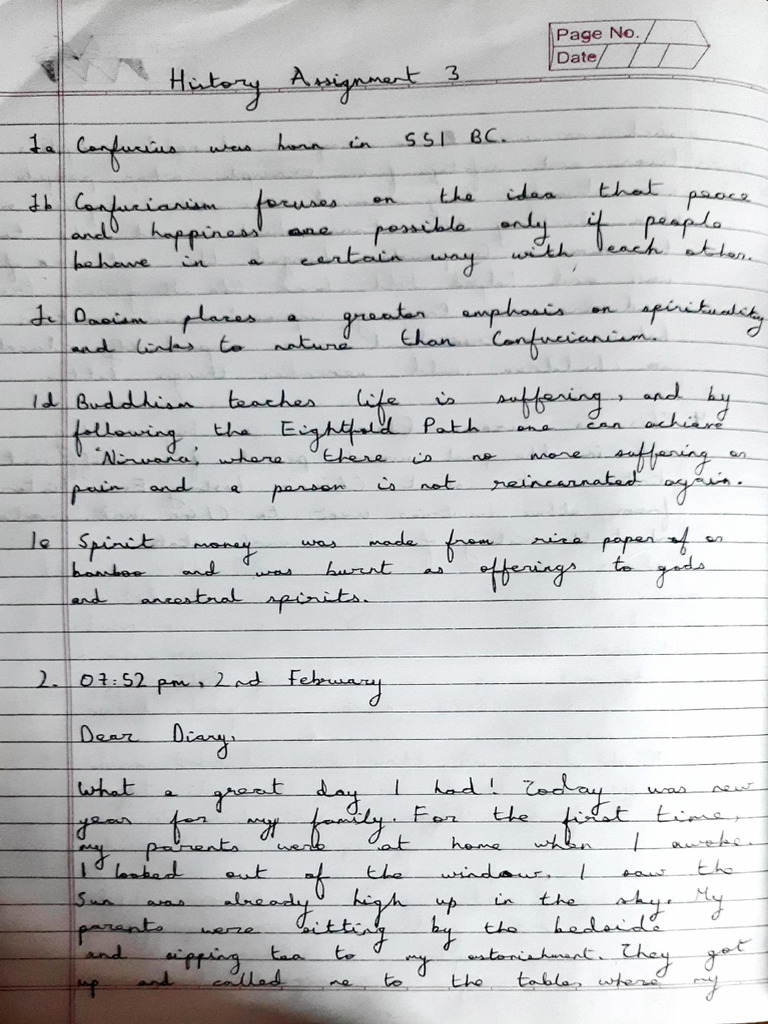 Page No.
Date
History Assignment 3
1a Confucius was born in 551 BC.
1b Confucianism focuses on the idea that peace
and happiness are possible only if people
behave in a certain way with each other.
1c Daoism places a greater emphasis on spirituality
and links to nature than Confucianism.
1d Buddhism teaches life is suffering, and by
following the Eightfold Path one can achieve
'Nirvana', where there is no more suffering or
pain and a person is not reincarnated again.
1e Spirit money was made from rice paper of or
bamboo and was burnt as offerings to gods
and ancestral spirits.
2. 07:52 pm, 2nd February
Dear Diary,
What a great day I had! Today was new
year for my family. For the first time,
my parents were at home when I awoke.
I looked out of the window. I saw the
Sun was already high up in the sky. My
parents were sitting by the bedside
and sipping tea to my astonishment. They got
up and called me to the table, where my